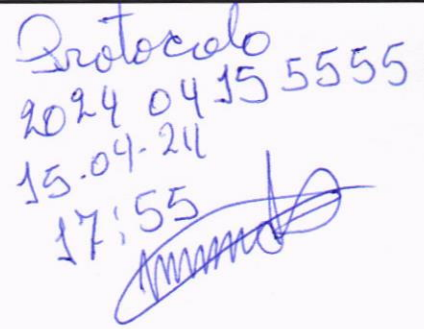 Protocolo
2024 04 15 5555
15.04.24
17:55